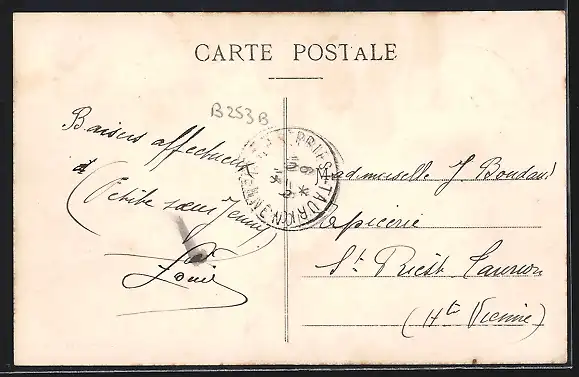 CARTE POSTALE
B253B
Baisers affectueux
à Petite sœur Jenny
Louis
Mademoiselle J Boudaud
Epicerie
St Priest Taurion
(Hte Vienne)